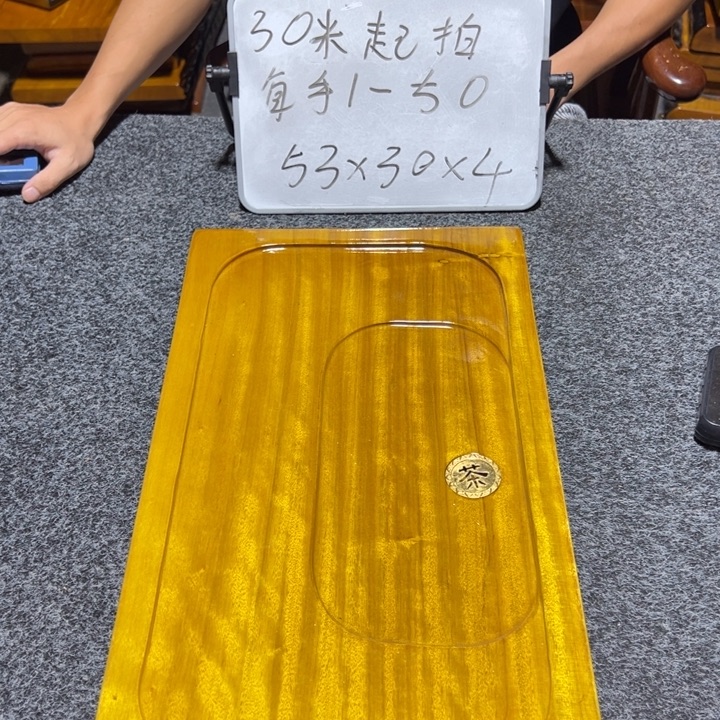 30米起拍
每手1-50
53×30×4
茶